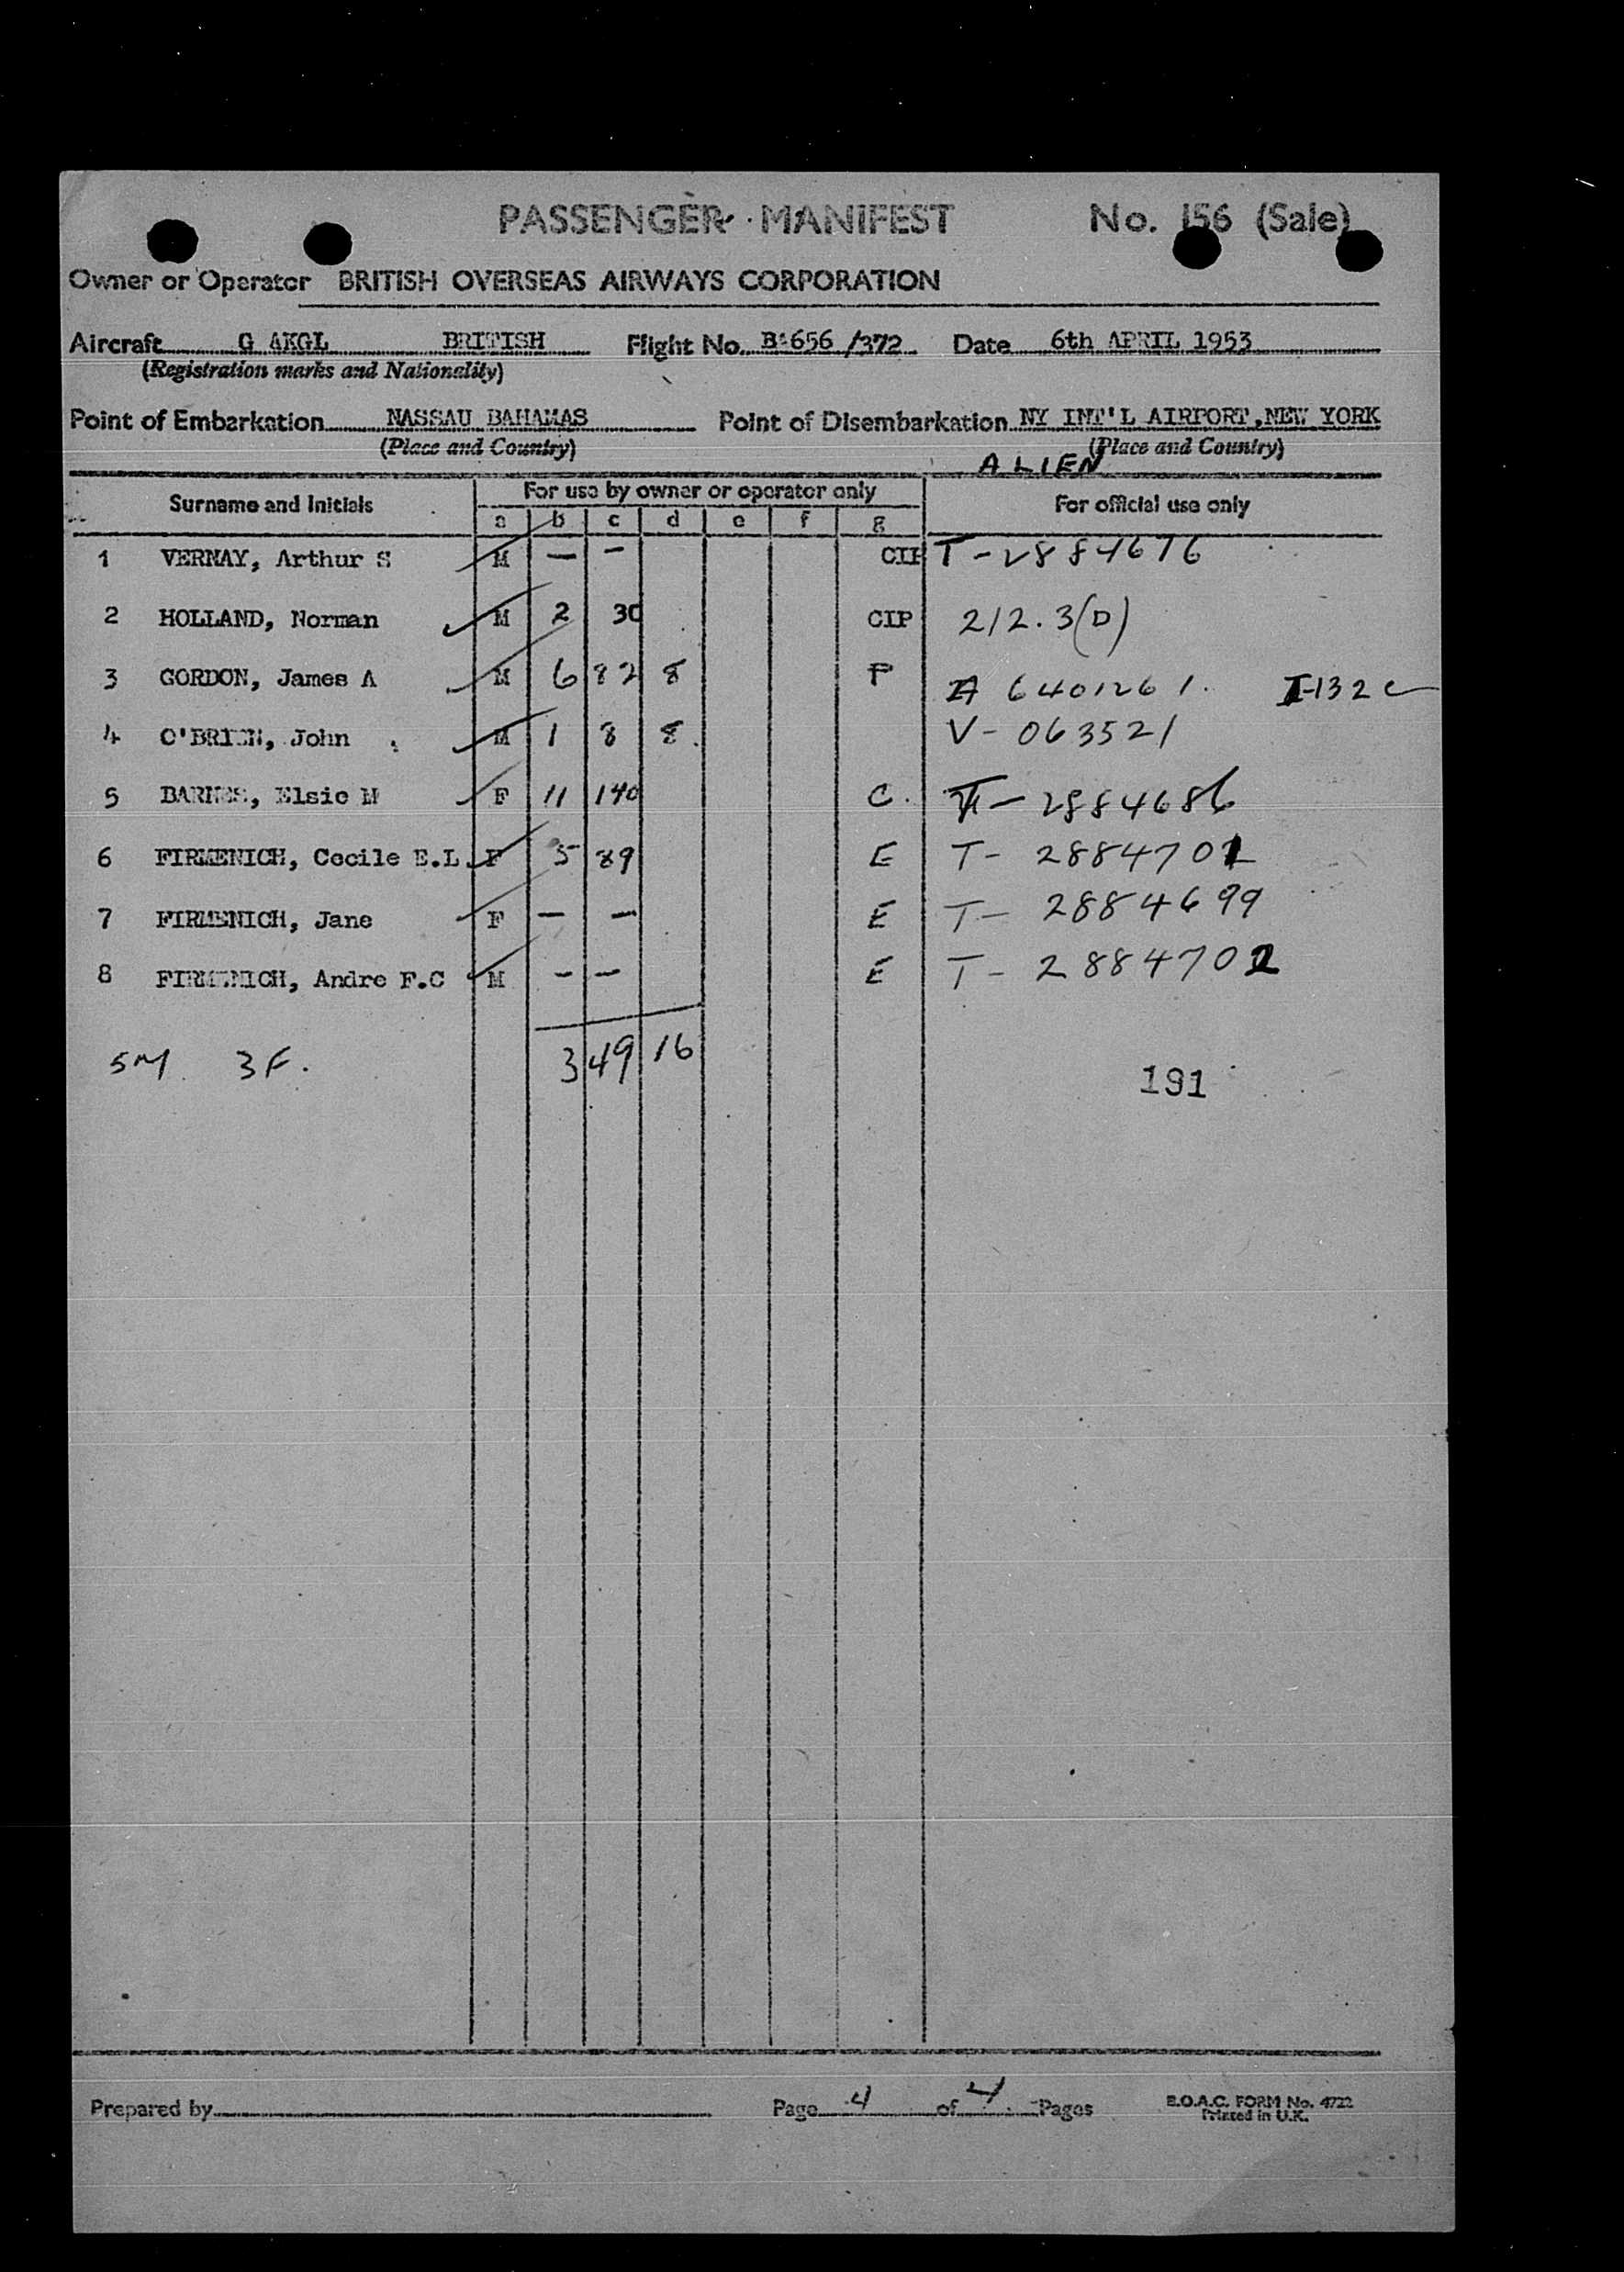 PASSENGER MANIFEST No. 156 (Sale)
Owner or Operator BRITISH OVERSEAS AIRWAYS CORPORATION
Aircraft G AKGL BRITISH Flight No. BA656 /372 Date 6th APRIL 1953
(Registration marks and Nationality)
Point of Embarkation NASSAU BAHAMAS Point of Disembarkation NY INT'L AIRPORT, NEW YORK
(Place and Country) (Place and Country)
ALIEN
Surname and Initials For use by owner or operator only For official use only
a b c d e f g
1 VERNAY, Arthur S M — — CIP T-2884676
2 HOLLAND, Norman M 2 30 CIP 212.3(D)
3 GORDON, James A M 6 82 8 P A 6401261. I-132c
4 O'BRIEN, John M 1 8 8. V-063521
5 BARNES, Elsie M F 11 140 C. T-2884686
6 FIRMENICH, Cecile E.L F 5 89 E T-2884701
7 FIRMENICH, Jane F — — E T-2884699
8 FIRMENICH, Andre F.C M — — E T-2884702
5M. 3F. 349 16
191
Prepared by Page 4 of 4 Pages B.O.A.C. FORM No. 4722
Printed in U.K.